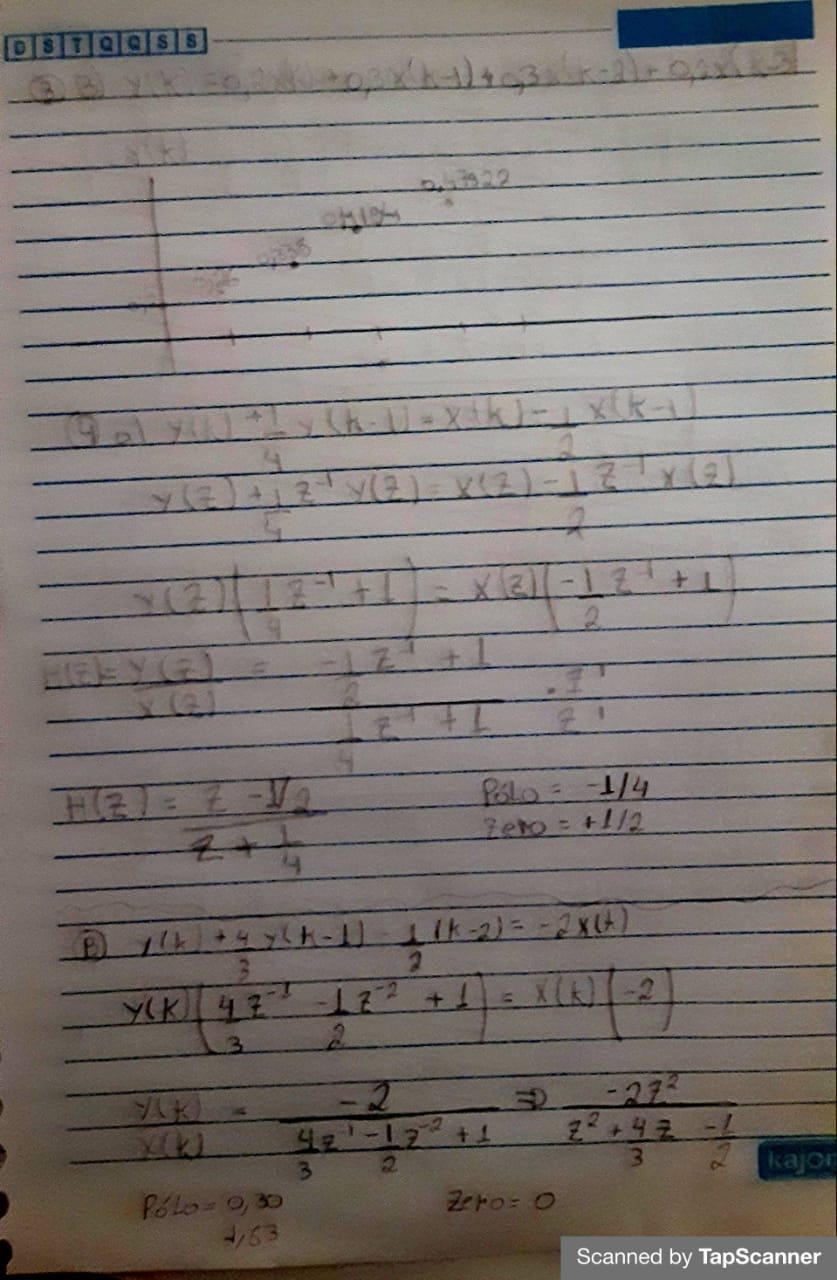 D S T Q Q S S
③ B) Y(k) = 0,2x(k) + 0,3x(k-1) + 0,3x(k-2) + 0,2x(k-3)
0,338
0,47922
④ a) Y(k) + 1/4 Y(k-1) = X(k) - 1/2 X(k-1)
Y(Z) + 1/5 Z⁻¹ Y(Z) = X(Z) - 1/2 Z⁻¹ X(Z)
Y(Z)(1/4 Z⁻¹ + 1) = X(Z)(-1/2 Z⁻¹ + 1)
H(Z) = Y(Z)/X(Z) = (-1/2 Z⁻¹ + 1)/(1/4 Z⁻¹ + 1) · Z¹/Z¹
H(Z) = (Z - 1/2)/(Z + 1/4) Pólo = -1/4
Zero = +1/2
Ⓑ Y(k) + 4/3 Y(k-1) - 1/2 (k-2) = -2X(k)
Y(K)(4/3 Z⁻¹ - 1/2 Z⁻² + 1) = X(K)(-2)
Y(K)/X(K) = -2/(4/3 Z⁻¹ - 1/2 Z⁻² + 1) ⇒ -2Z²/(Z² + 4/3 Z - 1/2)
Pólo = 0,30 Zero = 0
1,63
kajor
Scanned by TapScanner